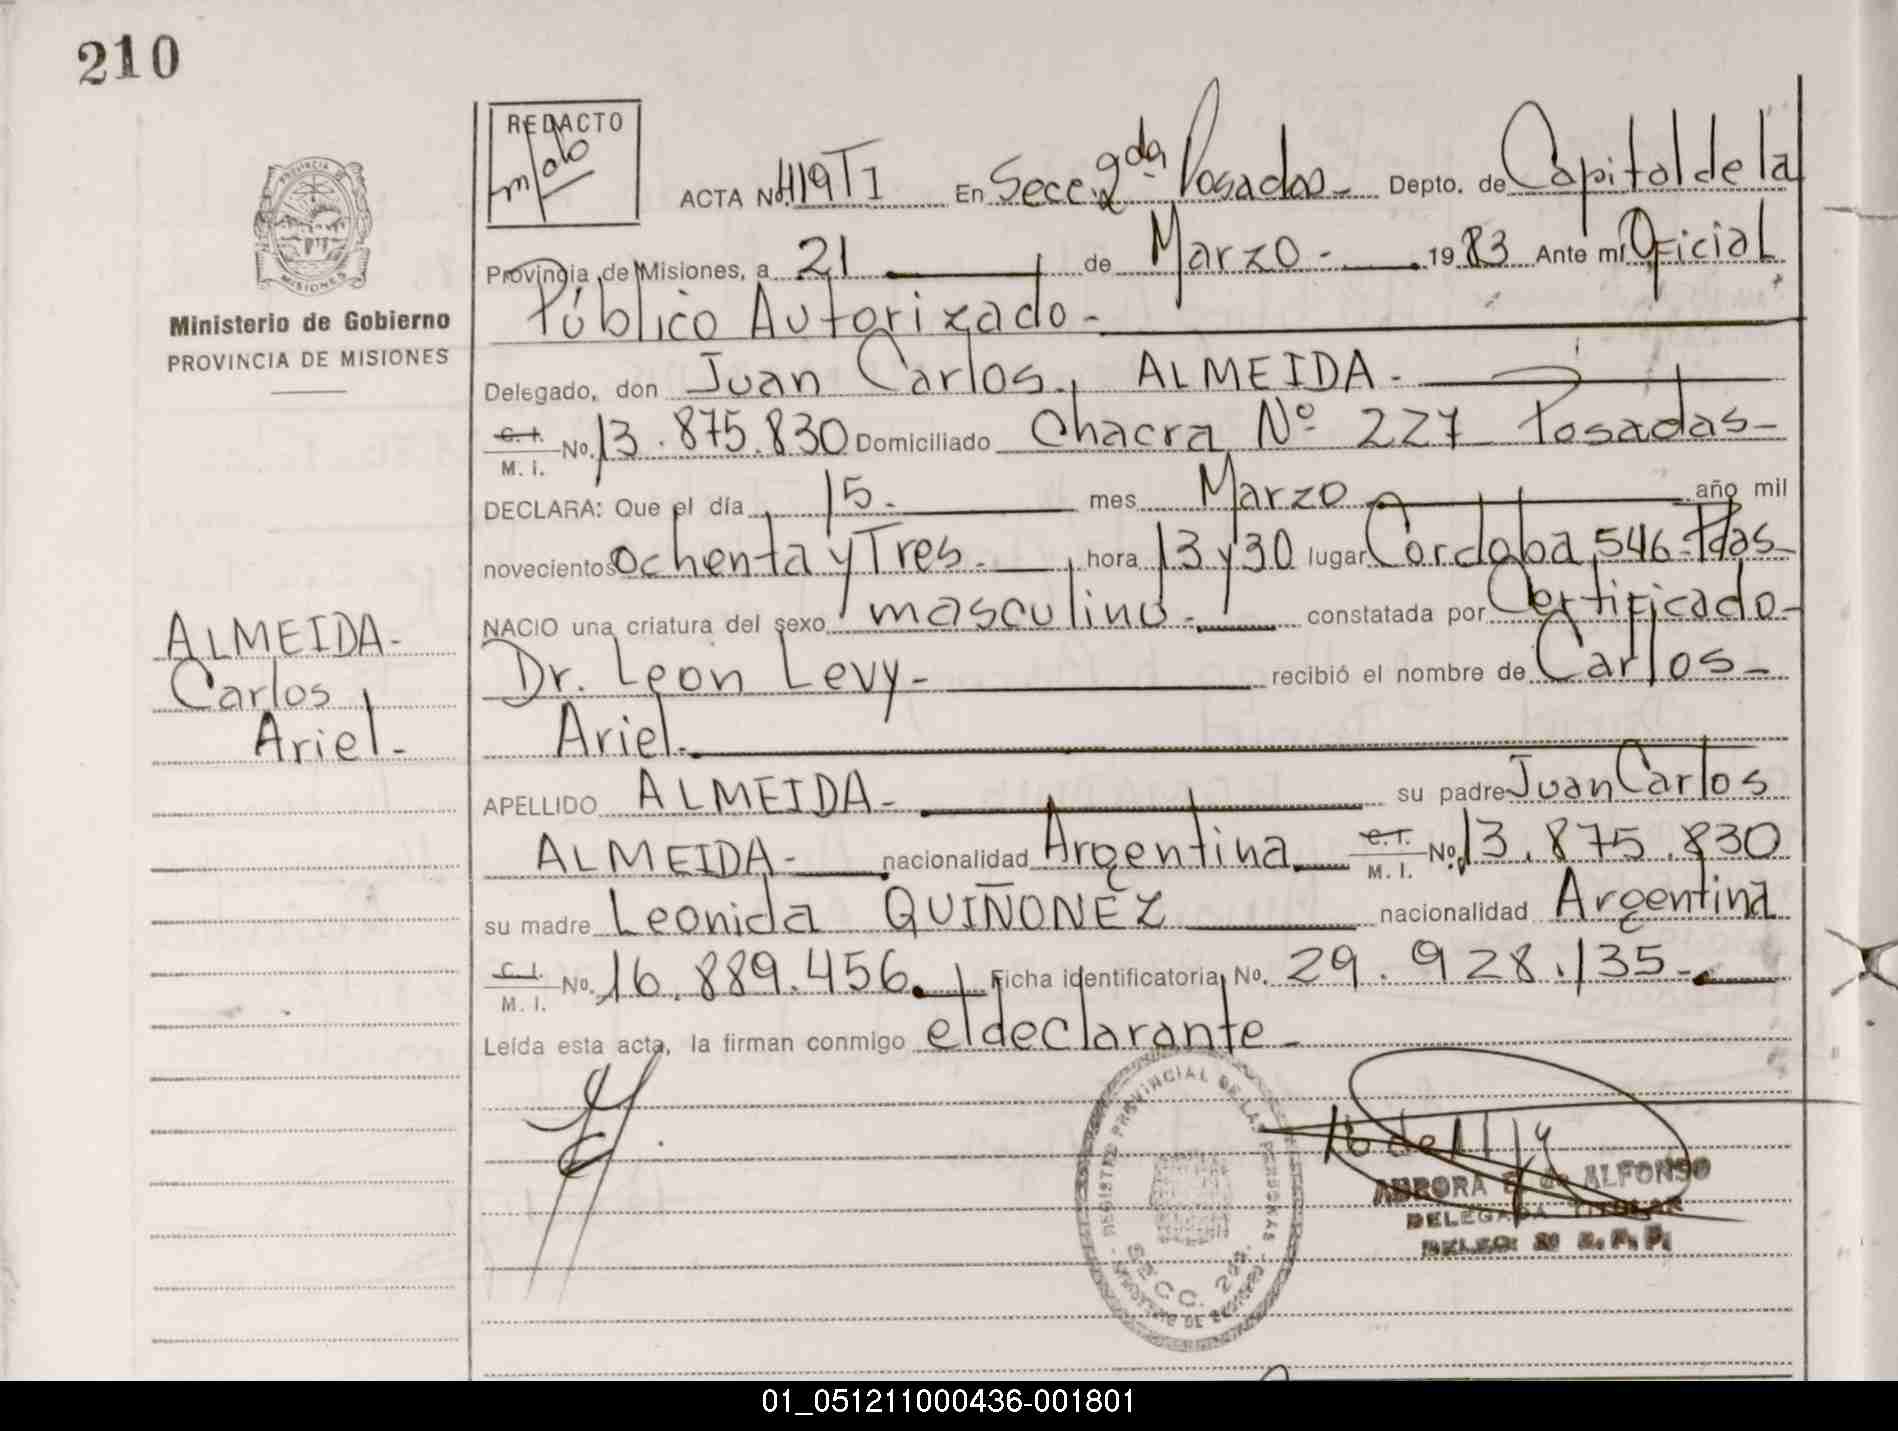 210
REDACTO
ACTA No. 419 T1 En Secc. 2da Posadas - Depto. de Capital de la
PROVINCIA DE
MISIONES
Provincia de Misiones, a 21 de Marzo - 1983 Ante mí Oficial
Ministerio de Gobierno
PROVINCIA DE MISIONES
Público Autorizado -
Delegado, don Juan Carlos, ALMEIDA -
C. I. M. I. No. 13.875.830 Domiciliado Chacra Nº 227 Posadas -
DECLARA: Que el día 15 - mes Marzo año mil
novecientos ochenta y Tres - hora 13 y 30 lugar Cordoba 546 - Pdas -
NACIO una criatura del sexo masculino - constatada por Certificado -
ALMEIDA -
Carlos
Ariel -
Dr. Leon Levy - recibió el nombre de Carlos -
Ariel -
APELLIDO ALMEIDA - su padre Juan Carlos
ALMEIDA - nacionalidad Argentina C. I. M. I. No. 13.875.830
su madre Leonida QUIÑONEZ nacionalidad Argentina
C. I. M. I. No. 16.889.456. Ficha identificatoria, No. 29.928.135 -
Leída esta acta, la firman conmigo el declarante -
REGISTRO PROVINCIAL DE LAS PERSONAS
SECC. 2da.
AURORA E. de ALFONSO
DELEGADA TITULAR
01_051211000436-001801